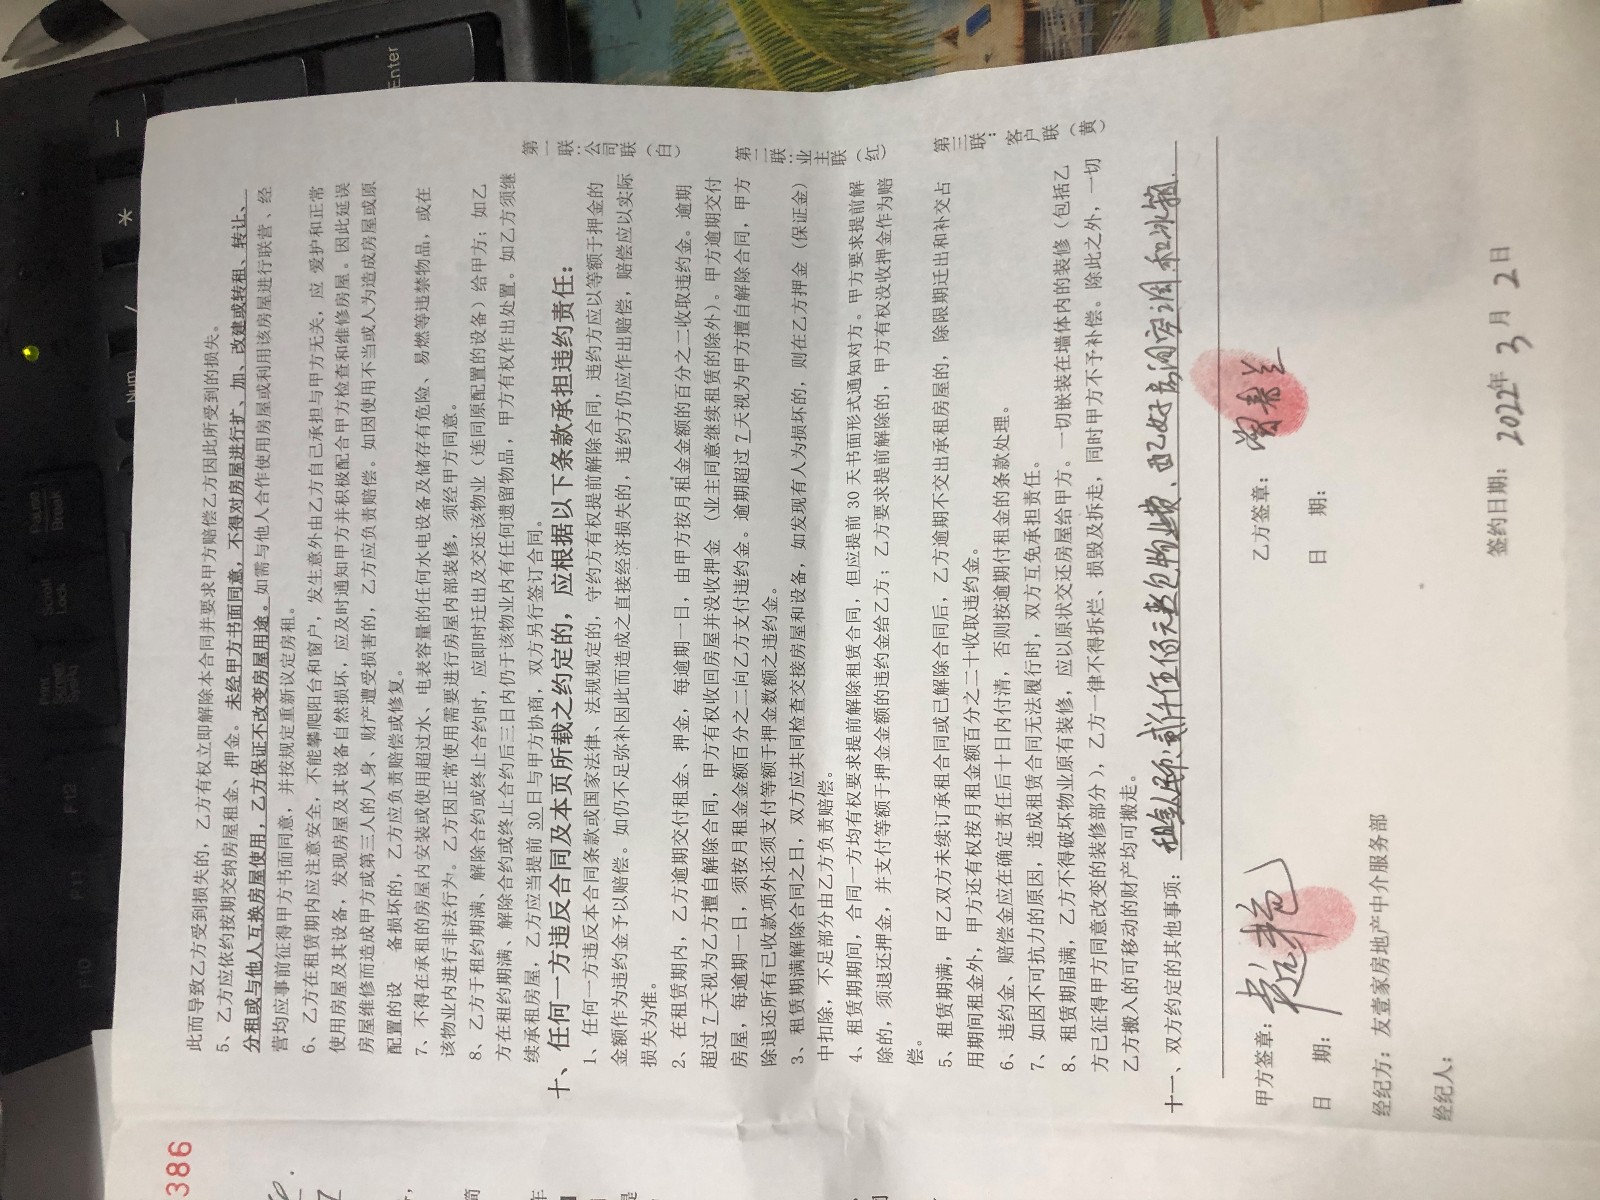 此而导致乙方受到损失的，乙方有权立即解除本合同并要求甲方赔偿乙方因此所受到的损失。
5、乙方应依约按期交纳房屋租金、押金。未经甲方书面同意，不得对房屋进行扩、加、改建或转租、转让、
分租或与他人互换房屋使用，乙方保证不改变房屋用途。如需与他人合作使用房屋或利用该房屋进行联营、经
营均应事前征得甲方书面同意，并按规定重新议定房租。
6、乙方在租赁期内应注意安全，不能攀爬阳台和窗户，发生意外由乙方自己承担与甲方无关，应 爱护和正常
使用房屋及其设备，发现房屋及其设备自然损坏，应及时通知甲方并积极配合甲方检查和维修房屋。因此延误
房屋维修而造成甲方或第三人的人身、财产遭受损害的，乙方应负责赔偿。如因使用不当或人为造成房屋或原
配置的设 备损坏的，乙方应负责赔偿或修复。
7、不得在承租的房屋内安装或使用超过水、电表容量的任何水电设备及储存有危险、易燃等违禁物品，或在
该物业内进行非法行为。乙方因正常使用需要进行房屋内部装修，须经甲方同意。
8、乙方于租约期满、解除合约或终止合约时，应即时迁出及交还该物业（连同原配置的设备）给甲方；如乙
方在租约期满、解除合约或终止合约后三日内仍于该物业内有任何遗留物品，甲方有权作出处置。如乙方须继
续承租房屋，乙方应当提前 30 日与甲方协商，双方另行签订合同。
十、任何一方违反合同及本页所载之约定的，应根据以下条款承担违约责任：
1、任何一方违反本合同条款或国家法律、法规规定的，守约方有权提前解除合同，违约方应以等额于押金的
金额作为违约金予以赔偿。如仍不足弥补因此而造成之直接经济损失的，违约方仍应作出赔偿，赔偿应以实际
损失为准。
2、在租赁期内，乙方逾期交付租金、押金，每逾期一日，由甲方按月租金金额的百分之二收取违约金。逾期
超过 7 天视为乙方擅自解除合同，甲方有权收回房屋并没收押金 （业主同意继续租赁的除外）。甲方逾期交付
房屋，每逾期一日，须按月租金金额百分之二向乙方支付违约金。逾期超过 7 天视为甲方擅自解除合同，甲方
除退还所有已收款项外还须支付等额于押金数额之违约金。
3、租赁期满解除合同之日，双方应共同检查交接房屋和设备，如发现有人为损坏的，则在乙方押金（保证金）
中扣除，不足部分由乙方负责赔偿。
4、租赁期期间，合同一方均有权要求提前解除租赁合同，但应提前 30 天书面形式通知对方。甲方要求提前解
除的，须退还押金，并支付等额于押金金额的违约金给乙方；乙方要求提前解除的，甲方有权没收押金作为赔
偿。
5、租赁期满，甲乙双方未续订承租合同或已解除合同后，乙方逾期不交出承租房屋的，除限期迁出和补交占
用期间租金外，甲方还有权按月租金额百分之二十收取违约金。
6、违约金、赔偿金应在确定责任后十日内付清，否则按逾期付租金的条款处理。
7、如因不可抗力的原因，造成租赁合同无法履行时，双方互免承担责任。
8、租赁期届满，乙方不得破坏物业原有装修，应以原状交还房屋给甲方。一切嵌装在墙体内的装修（包括乙
方已征得甲方同意改变的装修部分），乙方一律不得拆烂、损毁及拆走，同时甲方不予补偿。除此之外，一切
乙方搬入的可移动的财产均可搬走。
十一、双方约定的其他事项：租金人民币贰仟伍佰元整包物业费、西乙好房间空调和冰箱.
甲方签章：
乙方签章：
日 期：
日 期：
经纪方：友壹家房地产中介服务部
经纪人：
签约日期：2022年 3 月 2 日
第一联：公司联（白）
第二联：业主联（红）
第三联：客户联（黄）
386
Enter
Num
Pause
Break
Scroll
Lock
F12
F11
F10